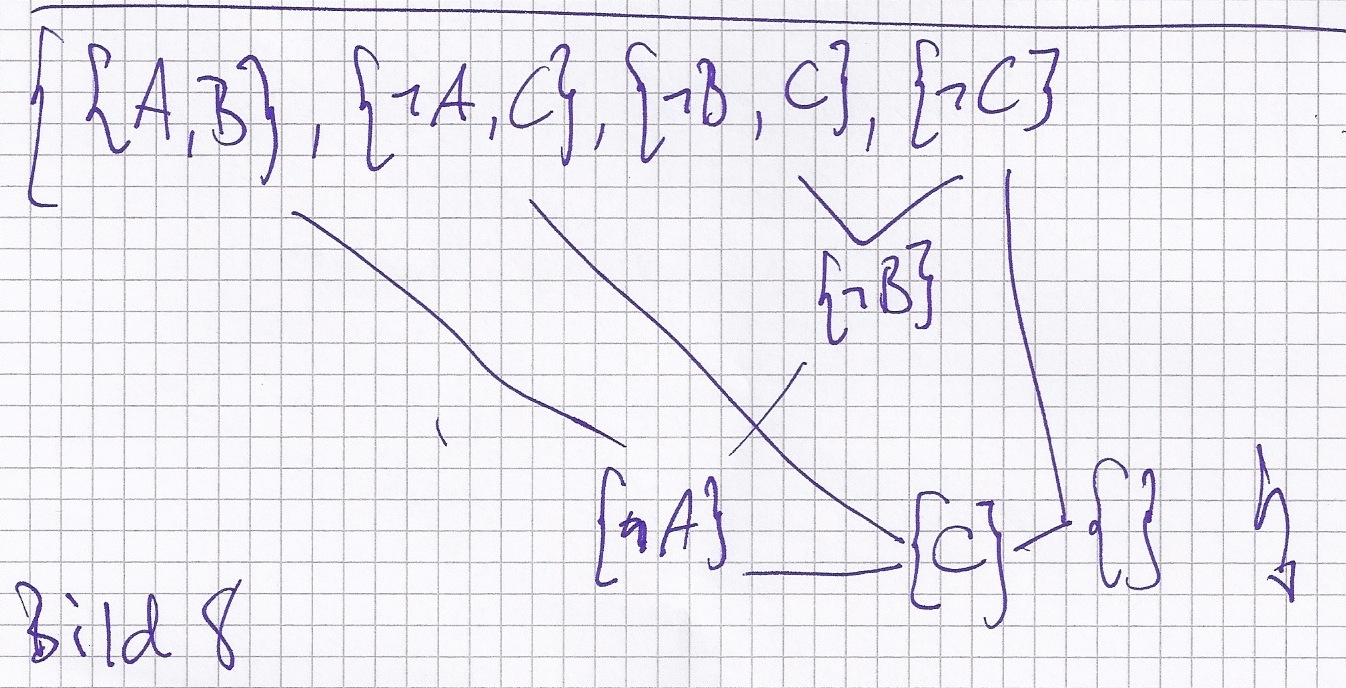 { {A,B}, {¬A,C}, {¬B, C}, {¬C}
{¬B}
{¬A} {C} {} ↯
Bild 8